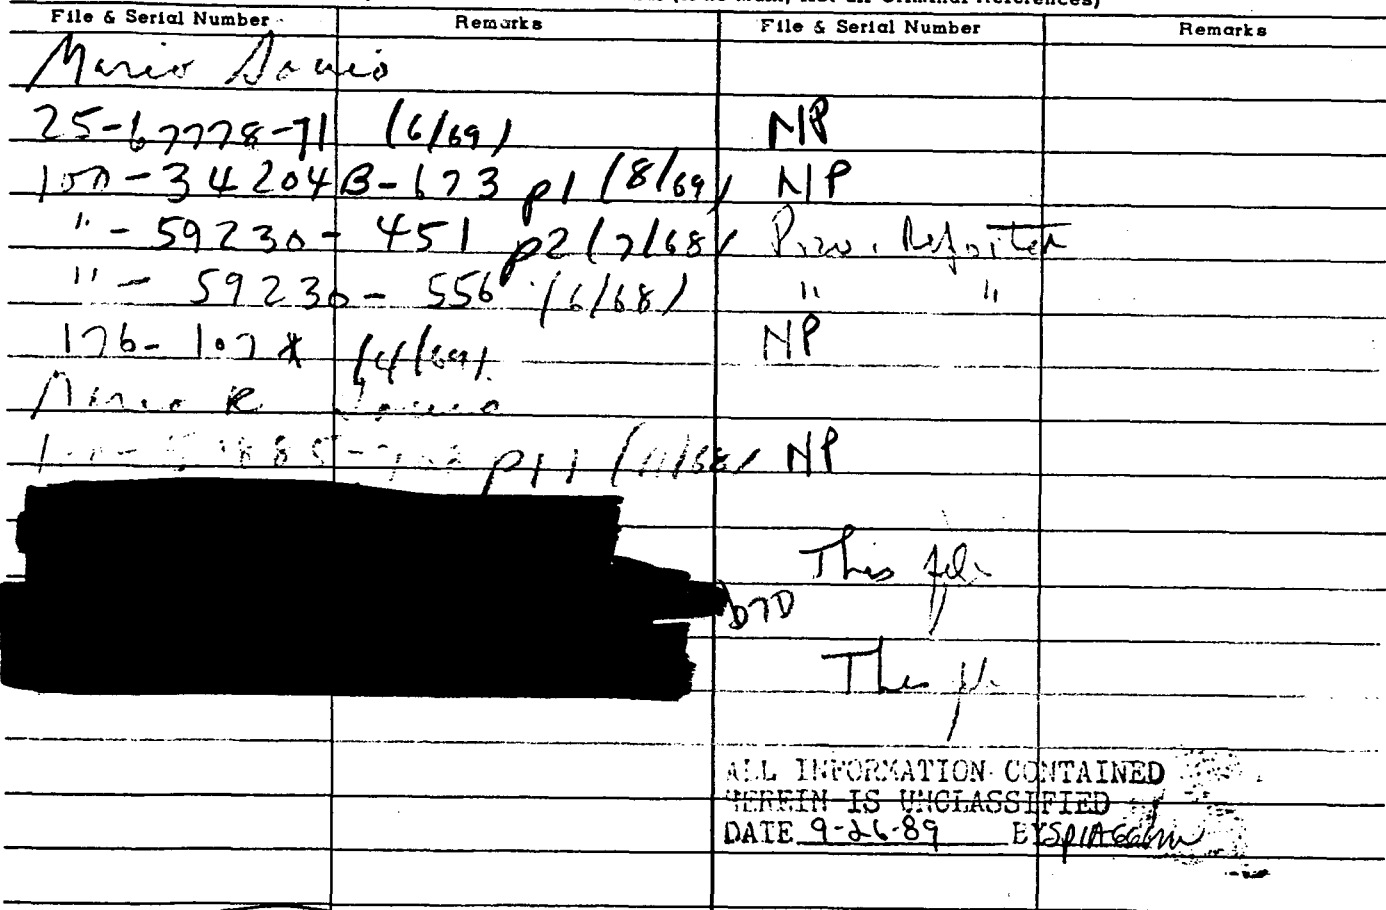 File & Serial Number Remarks File & Serial Number Remarks
Mario Savio
25-67778-71 (6/69) NP
100-34204B-673 p1 (8/69) NP
" - 59230 - 451 p2 (7/68) Prev. Reported
" - 59230 - 556 (6/68) " "
176-107* (4/69) NP
Mario R Savio
p11 NP
This file
b7D
This file
ALL INFORMATION CONTAINED
HEREIN IS UNCLASSIFIED
DATE 9-26-89 BY